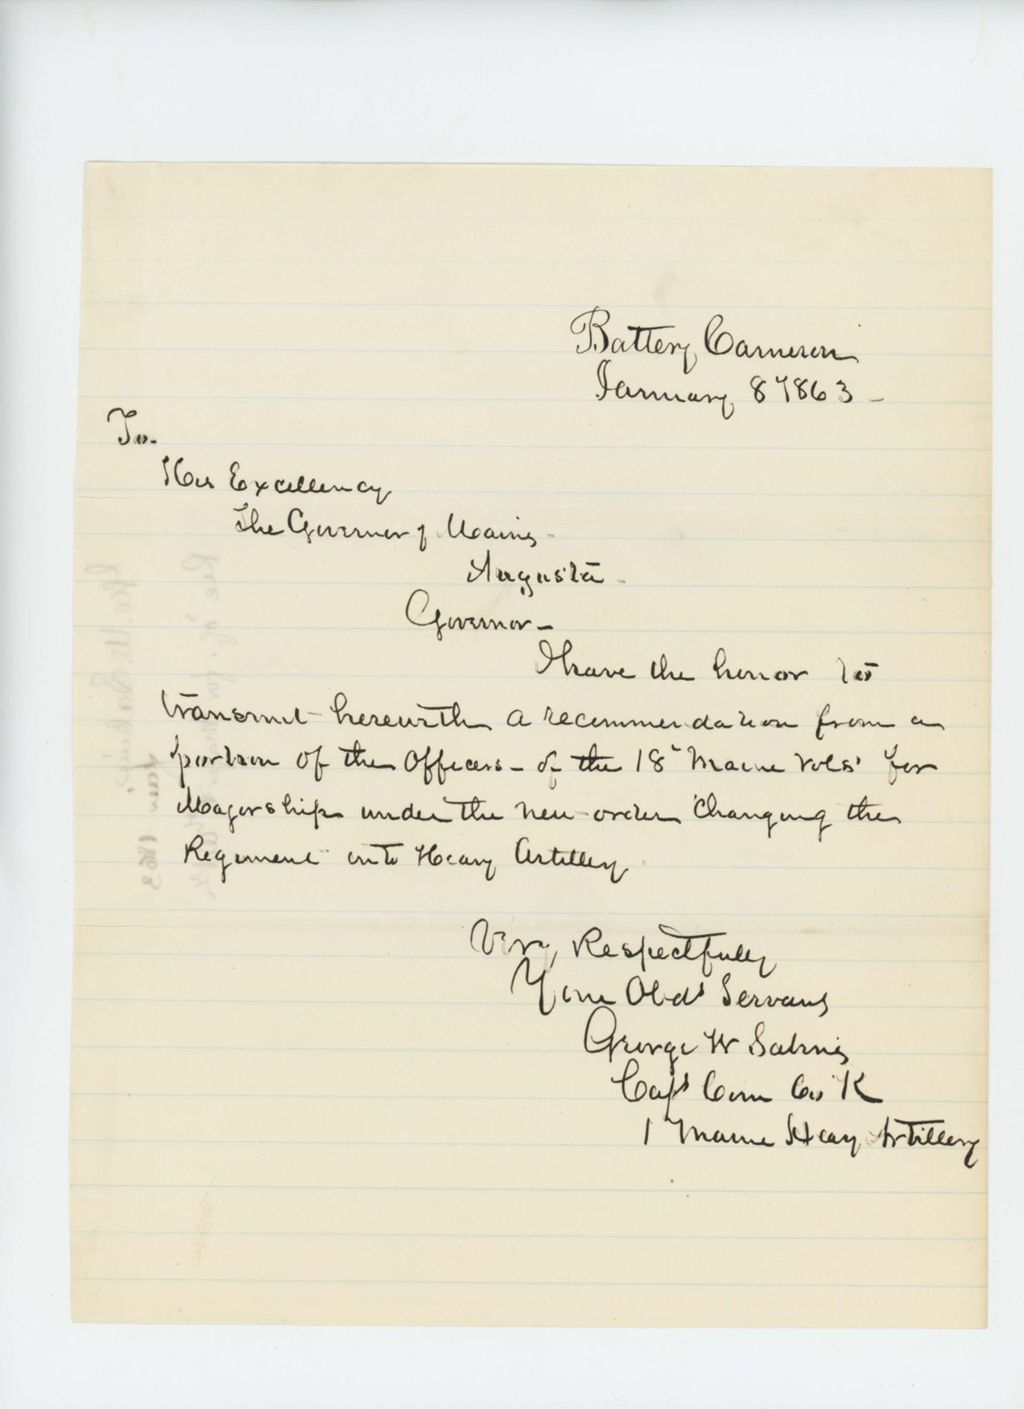 Battery Cameron
January 8 1863 -
To.
His Excellency
The Governor of Maine -
Augusta -
Governor -
I have the honor to
transmit herewith a recommendation from a
portion of the Officers - of the 18" Maine Vols' for
Majorship under the new order changing the
Regiment into Heavy Artillery
Very Respectfully
Your Obdt Servant
George W Sabine
Capt Com Co K
1 Maine Heavy Artillery